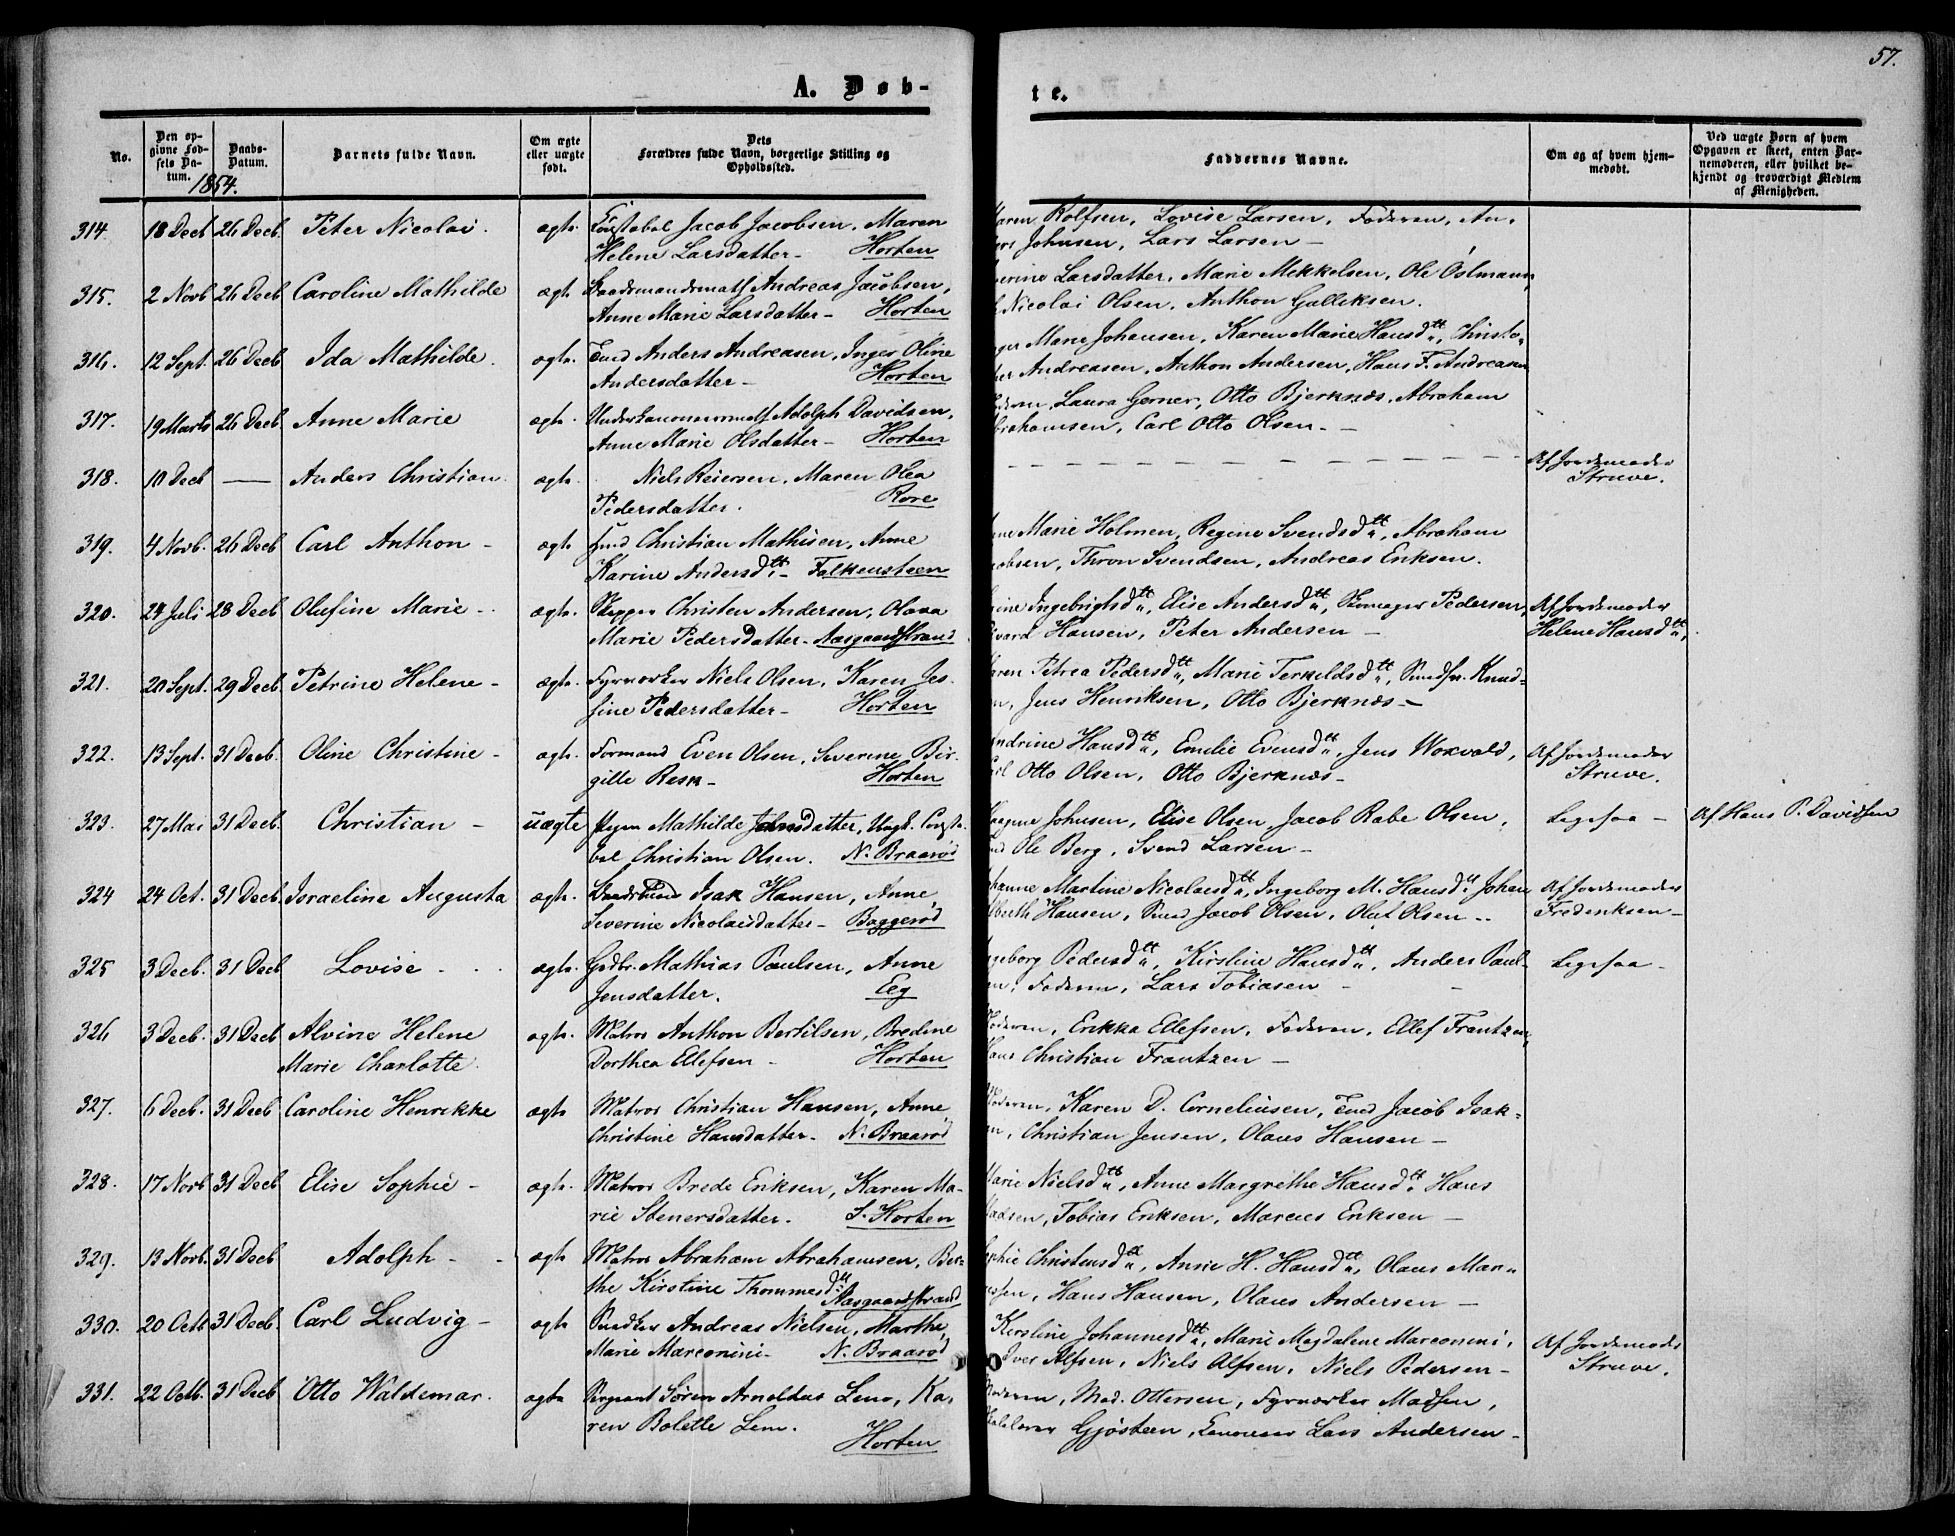 57.
A. Døb-
te.
No.
Den op-
givne Fød-
sels Da-
tum.
Daabs-
Datum.
Barnets fulde Navn.
Om ægte
eller uægte
født.
Dets
Forældres fulde Navn, borgerlige Stilling og
Opholdssted.
Faddernes Navne.
Om og af hvem hjem-
medøbt.
Ved uægte Børn af hvem
Opgaven er skeet, enten Bar-
nemoderen, eller hvilket be-
kjendt og troværdigt Medlem
af Menigheden.
1854.
314 18 Decb 26 Decb. Peter Nicolai. ægte Constabel Jacob Jacobsen, Maren
Helene Larsdatter - Horten
Maren Rolfsen, Lovise Larsen, Faderen, An-
Johnsen, Lars Larsen -
315. 2 Novb 26 Decb Caroline Mathilde ægte Andreas Jacobsen,
Anne Marie Larsdatter - Horten
Larsdatter, Marie Mekkelsen, Ole Oslmann,
Nicolai Olsen, Anthon Gulliksen.
316. 12 Sept. 26 Decb Ida Mathilde. ægte. Tmd Anders Andreasen, Inger Oline
Andersdatter - Horten
Marie Johansen, Karen Marie Hansdtt, Christo-
Andreasen, Anthon Andersen, Hans F. Andreasen
317. 19 Marts 26 Decb. Anne Marie ægte. Adolph Davidsen,
Anne Marie Olsdatter - Horten
Laura Gerner, Otto Bjerknæs, Abraham
Abrahamsen, Carl Otto Olsen. -
318. 10 Decb — Anders Christian. ægte. Niels Reiersen, Maren Olea
Pedersdatter. Rore
Af Jordemoder
Struve.
319. 4 Novb. 26 Decb Carl Anthon - ægte Hmd Christian Mathisen, Anne
Karine Andersdtt - Falkensteen
Marie Holmen, Regine Svendsdtt, Abraham
Jacobsen, Thron Svendsen, Andreas Eriksen.
320. 24 Juli 28 Decb Olufine Marie - ægte. Skipper Christen Andersen, Olava
Marie Pedersdatter - Aasgaardstrand
Ingebrigtsdtt, Elise Andersdtt, Skomager Pedersen,
Hansen, Peter Andersen -
Af Jordemoder
Helene Hansdtt.
321. 20 Sept. 29 Decb Petrine Helene - ægte. Fyrværker Niels Olsen, Karen Jes-
sine Pedersdatter - Horten
Maren Petrea Pedersdtt, Marie Terkildsdtt, Knud-
Jens Henriksen, Otto Bjerknæs -
322. 13 Sept. 31 Decb. Oline Christine - ægte. Formand Even Olsen, Severine Bir-
gitte Resk - Horten
Hansdtt, Emilie Evensdtt, Jens Woxvold,
Carl Otto Olsen, Otto Bjerknæs -
Af Jordemoder
Struve.
323. 27 Mai 31 Decb. Christian - uægte Pigen Mathilde Johnsdatter, Ungk. Consta-
bel Christian Olsen. N. Braarød
Johnsen, Elise Olsen, Jacob Rabe Olsen,
Ole Berg, Svend Larsen -
Ligesaa -
Af Hans P. Davidsen
324 24 Oct. 31 Decb. Israeline Augusta ægte. Isak Hansen, Anne
Severine Nicolaisdatter - Baggerød
Johanne Martine Nicolaisdtt, Ingeborg M. Hansdtt Johan
Hansen, Smed Jacob Olsen, Oluf Olsen -
Af Jordemoder
Frederiksen -
325 3 Decb. 31 Decb Lovise - ægte. Gdbr. Mathias Paulsen, Anne
Jensdatter. Eeg
Ingeborg Pedersdtt, Kirstine Hansdtt, Anders Paul-
Faderen, Lars Tobiasen -
Ligesaa -
326 3 Decb. 31 Decb Alvine Helene
Marie Charlotte. ægte. Matros Anthon Bertilsen, Bredine
Dorthea Ellefsen - Horten
Moderen, Erikka Ellefsen, Faderen, Ellef Frantzen,
Hans Christian Frantzen -
327. 6 Decb. 31 Decb Caroline Henrikke ægte Matros Christian Hansen, Anne
Christine Hansdatter - N. Braarød
Moderen, Karen D. Corneliusen, Tmd Jacob Isak-
Christian Jensen, Olaus Hansen -
328. 17 Novb 31 Decb Elise Sophie - ægte. Matros Brede Eriksen, Karen Ma-
rie Stenersdatter. S. Horten
Marie Nielsdtt, Anne Margrethe Hansdtt Hans
Madsen, Tobias Eriksen, Marcus Eriksen -
329. 13 Novb. 31 Decb Adolph - ægte Matros Abraham Abrahamsen, Ber-
the Kirstine Thommesdtt Aasgaardstrand
Sophie Christensdtt, Anne H. Hansdtt, Olaus Mar-
Hans Hansen, Olaus Andersen -
330. 20 Octb 31 Decb. Carl Ludvig - ægte Snedker Andreas Nielsen, Marthe
Marie Marconini - N. Braarød
Kirstine Johannesdtt, Marie Magdalene Marconini,
Iver Alfsen, Niels Alfsen, Niels Pedersen -
Af Jordemoder
Struve.
331. 22 Octb. 31 Decb Otto Waldemar. ægte Sergeant Søren Arnoldus Lem, Ka-
ren Bolette Lem. Horten
Moderen, Mad. Ottersen, Fyrværker Madsen,
Gjøsteen, Lars Andersen -